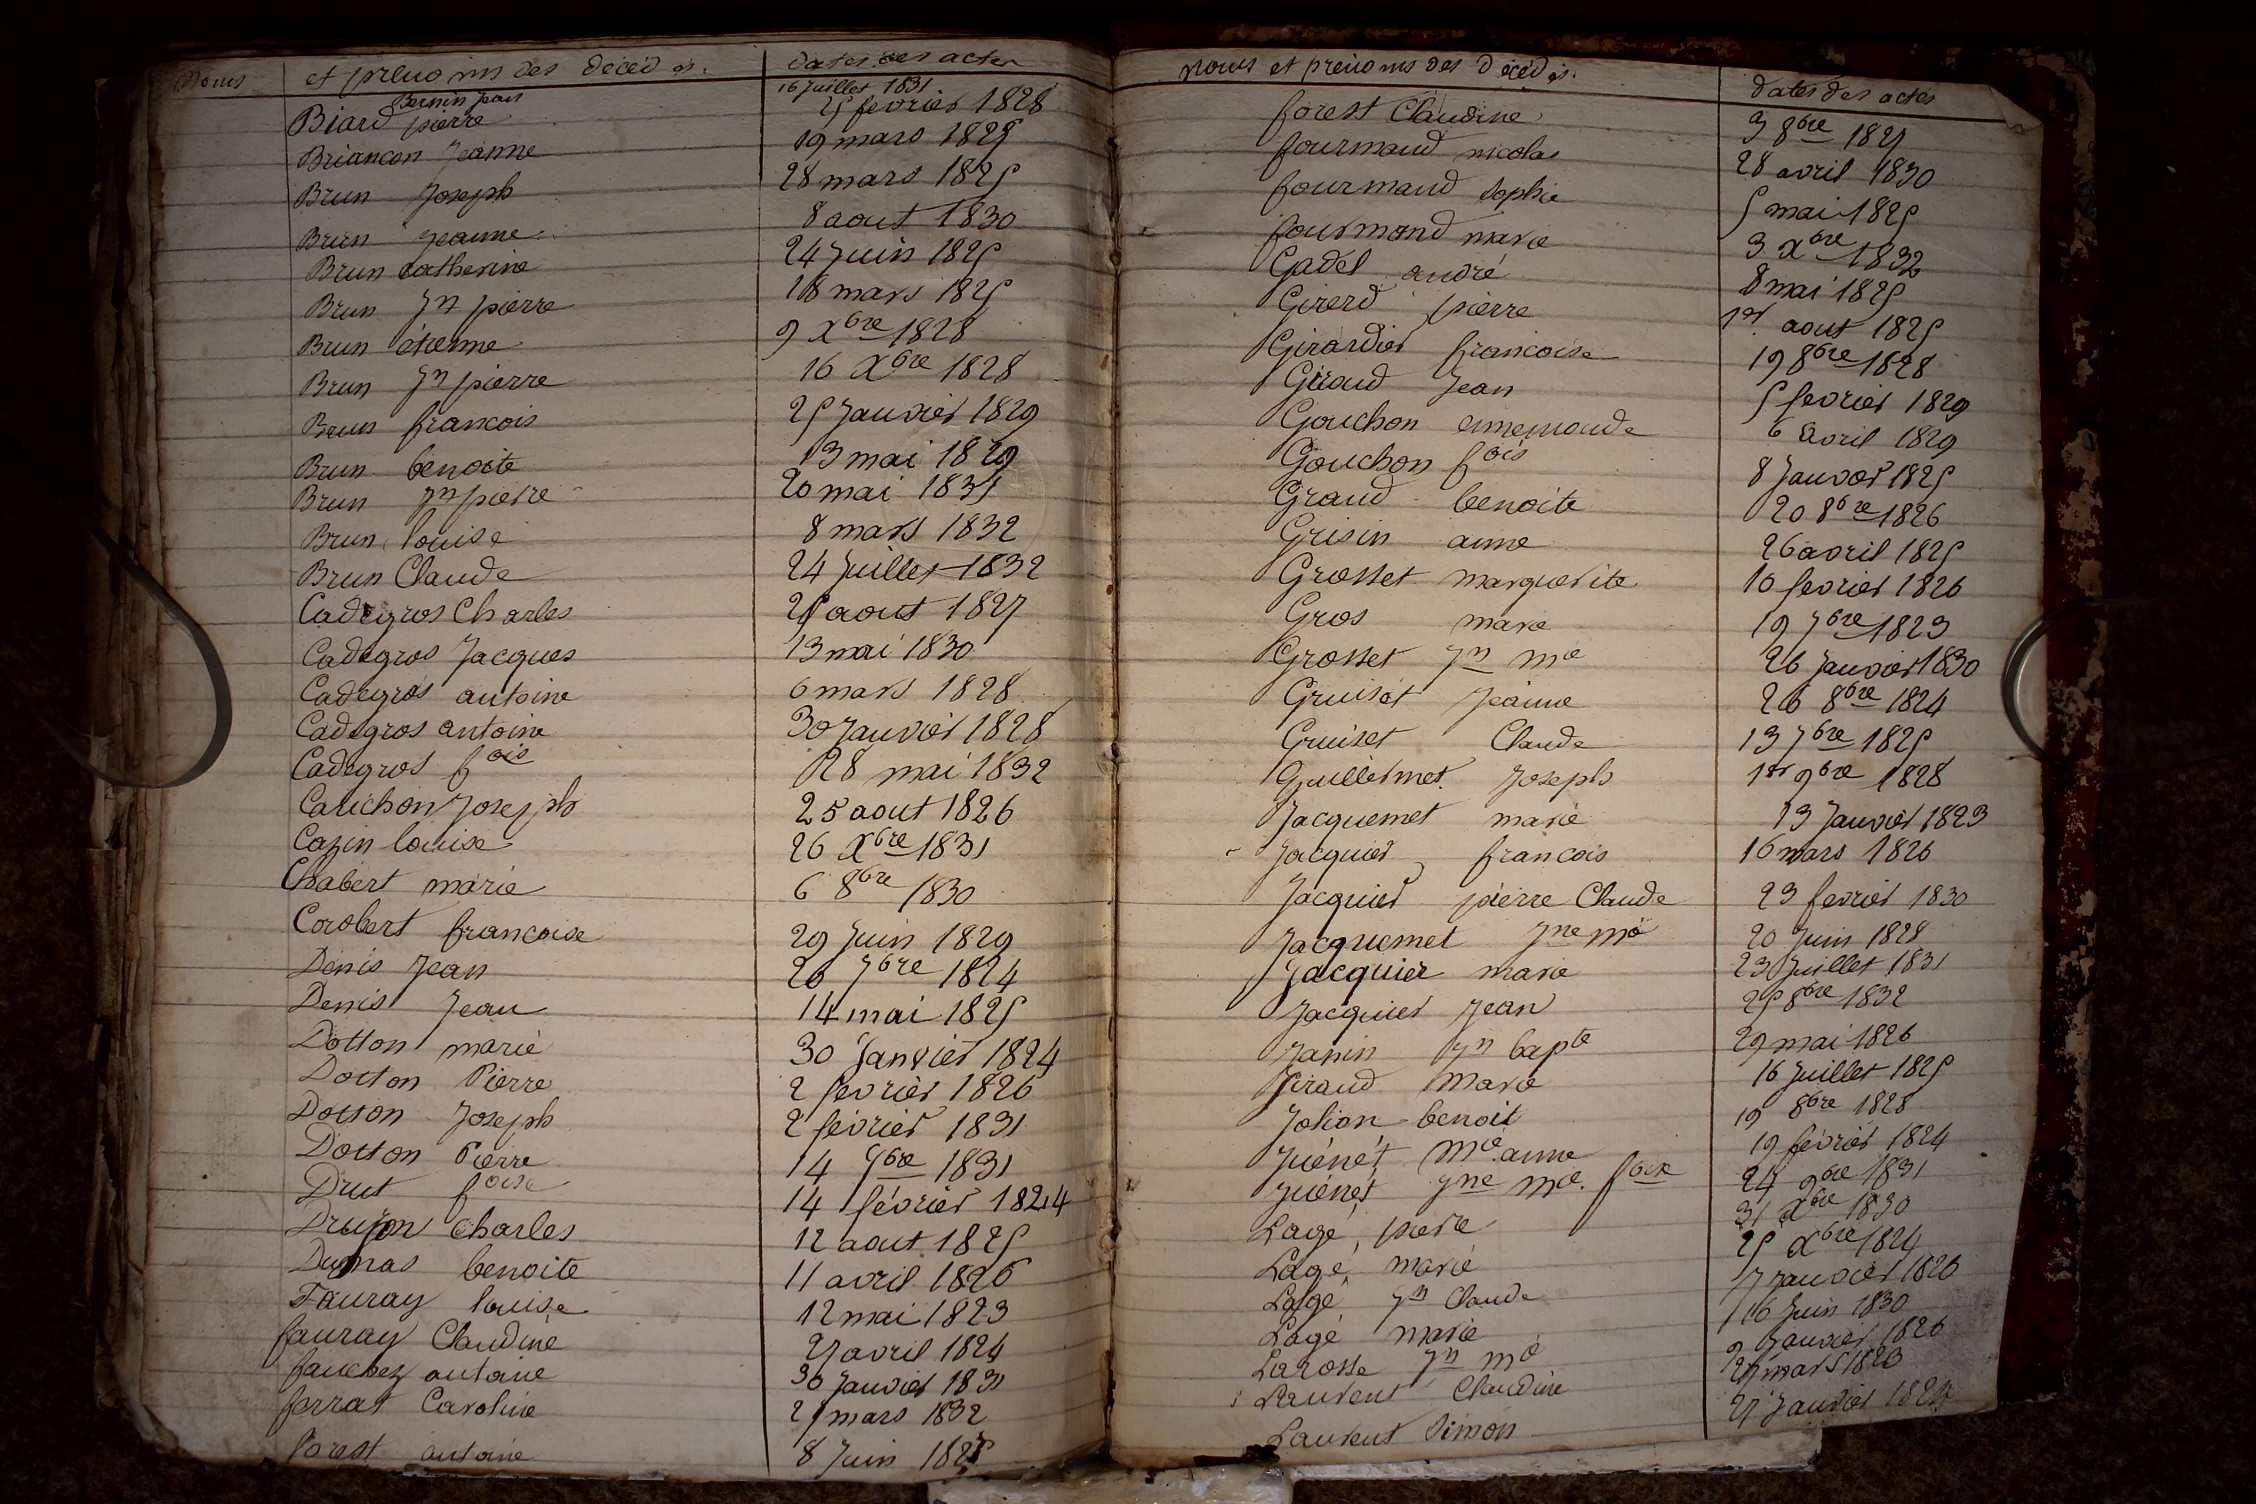 Noms et prenoms des décédés. dates des actes
Bernin jean 16 Juillet 1831
Biard pierre 25 fevrier 1828
Briancon Jeanne 19 mars 1825
Brun Joseph 28 mars 1825
Brun Jeanne 8 aout 1830
Brun catherine 24 Juin 1825
Brun Jn pierre 18 mars 1825
Brun étienne 9 Xbre 1828
Brun Jn pierre 16 Xbre 1828
Brun francois 25 Janvier 1829
Brun benoite 13 mai 1829
Brun Jn pierre 20 mai 1831
Brun louise 8 mars 1832
Brun Claude 24 Juillet 1832
Cadegros Charles aout 1827
Cadegros Jacques 13 mai 1830
Cadegros antoine 6 mars 1828
Cadegros antoine 30 Janvier 1828
Cadegros fois 28 mai 1832
Cauchon Joseph 25 aout 1826
Cazin louise 26 Xbre 1831
Chabert marie 6 8bre 1830
Corobert francoise 29 Juin 1829
Denis Jean 26 7bre 1824
Denis Jean 14 mai 1825
Dotton marie 30 Janvier 1824
Dotton Pierre 2 fevrier 1826
Dotton Joseph 2 février 1831
Dotton Pierre 14 9bre 1831
Drut foise 14 février 1824
Drujon Charles 12 aout 1825
Dumas benoite 11 avril 1826
Fauray louise 12 mai 1823
fauray Claudine avril 1824
fauchez antoine Janvier 1831
ferrat Caroline mars 1832
forest antoine 8 Juin
Noms et prenoms des décédés. dates des actes
forest Claudine 3 8bre 1825
fourmaud nicolas 28 avril 1830
fourmaud sophie 5 mai 1825
fourmond marie 3 Xbre 1832
Gadel andré 8 mai 1825
Girerd pierre 1er aout 1825
Girardier francoise 19 8bre 1828
Giraud Jean 5 fevrier 1829
Gouchon ennemonde 6 avril 1829
Gouchon fois 8 Janvier 1825
Graud benoite 20 8bre 1826
Grisin anne 26 avril 1825
Grosset marguerite 10 fevrier 1826
Gros marie 19 7bre 1823
Grosset Jn me 26 Janvier 1830
Gruiset Jeanne 26 8bre 1824
Gruiset Claude 13 7bre 1825
Guillermet. Joseph 1er 9bre 1828
Jacquemet marie 13 Janvier 1823
Jacquier francois 16 mars 1826
Jacquier pierre Claude 23 fevrier 1830
Jacquemet Jne me 20 Juin 1828
Jacquier marie 23 Juillet 1831
Jacquier Jean 25 8bre 1832
Janin Jn bapte 29 mai 1826
Jiraud marie 16 Juillet 1825
Jolian benoit 19 8bre 1828
Juénét Me anne 19 février 1824
Juénet Jne Me. foise 9bre 1831
Lagé pierre 31 Xbre 1830
Lagé marie 25 Xbre 1824
Lagé Jn Claude Janvier 1826
Lagé marie 16 Juin 1830
Larosse Jn me 9 Janvier 1826
Laurent Claudine mars 1823
Laurent Simon Janvier